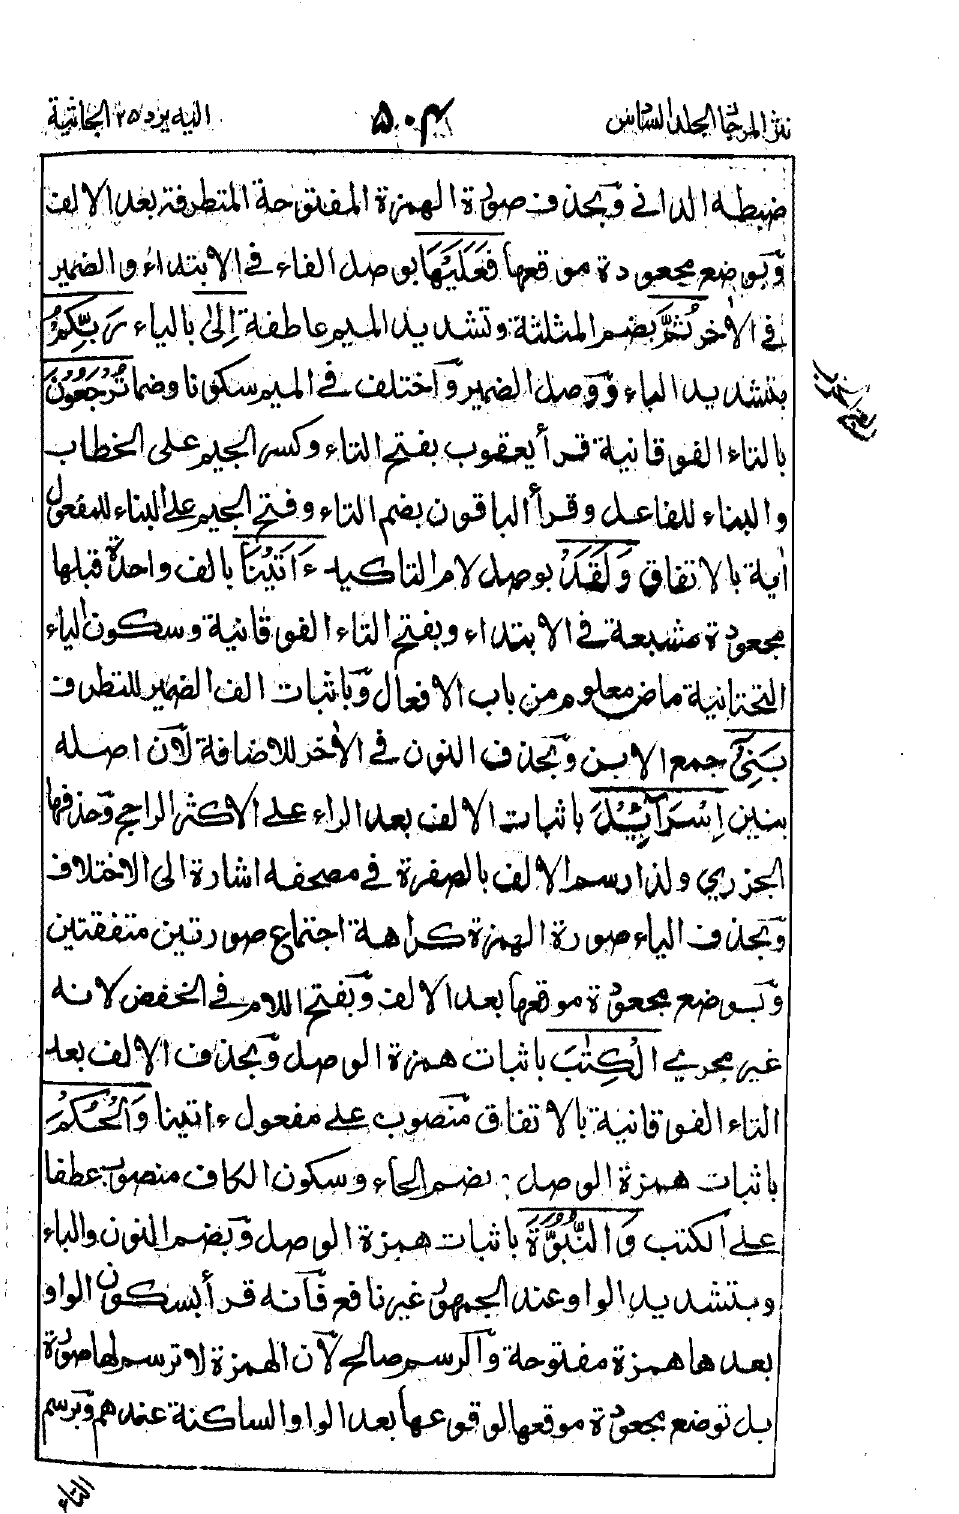 نثر المرجان الجلد السادس ٥٠٤ اليه يرد ٢٥ الجاثية
ضبطه الداني وبحذف صورة الهمزة المفتوحة المتطرفة بعد الالف
وبوضع مجعودة موقعها فَعَلَيْهَا بوصل الفاء في الابتداء والضمير
في الاٰخر ثُمَّ بضم المثلثة وتشديد الميم عاطفة اِلىٰ بالياء رَبِّكُمْ
بتشديد الباء ووصل الضمير واختلف في الميم سكونا وضما تُرْجَعُوْنَ
بالتاء الفوقانية قرأ يعقوب بفتح التاء وكسر الجيم على الخطاب
والبناء للفاعل وقرأ الباقون بضم التاء وفتح الجيم على البناء للمفعول
اٰية بالاتفاق وَلَقَدْ بوصل لام التاكيد ءَاتَيْنَا بالف واحدة قبلها
مجعودة مشبعة في الابتداء وبفتح التاء الفوقانية وسكون الياء
التحتانية ماض معلوم من باب الافعال وباثبات الف الضمير للتطرف
بَنِيْٓ جمع الابن وبحذف النون في الاٰخر للاضافة لان اصله
بنين اِسْرَآئِيْلَ باثبات الالف بعد الراء على الاكثر الراجح وحذفها
الجزري ولذا رسم الالف بالصفرة في مصحفه اشارة الى الاختلاف
وبحذف الياء صورة الهمزة كراهة اجتماع صورتين متفقتين
وبوضع مجعودة موقعها بعد الالف وبفتح اللام في الخفض لانه
غير مجرى الْكِتٰبَ باثبات همزة الوصل وبحذف الالف بعد
التاء الفوقانية بالاتفاق منصوب على مفعول ءاتينا وَالْحُكْمَ
باثبات همزة الوصل بضم الحاء وسكون الكاف منصوب عطفا
على الكتب وَالنُّبُوَّةَ باثبات همزة الوصل وبضم النون والباء
وبتشديد الواو عند الجمهور غير نافع فانه قرأ بسكون الواو
بعدها همزة مفتوحة والرسم صالح لان الهمزة لا ترسم لها صورة
بل توضع مجعودة موقعها لوقوعها بعد الواو الساكنة عندهم وبرسم
التاء